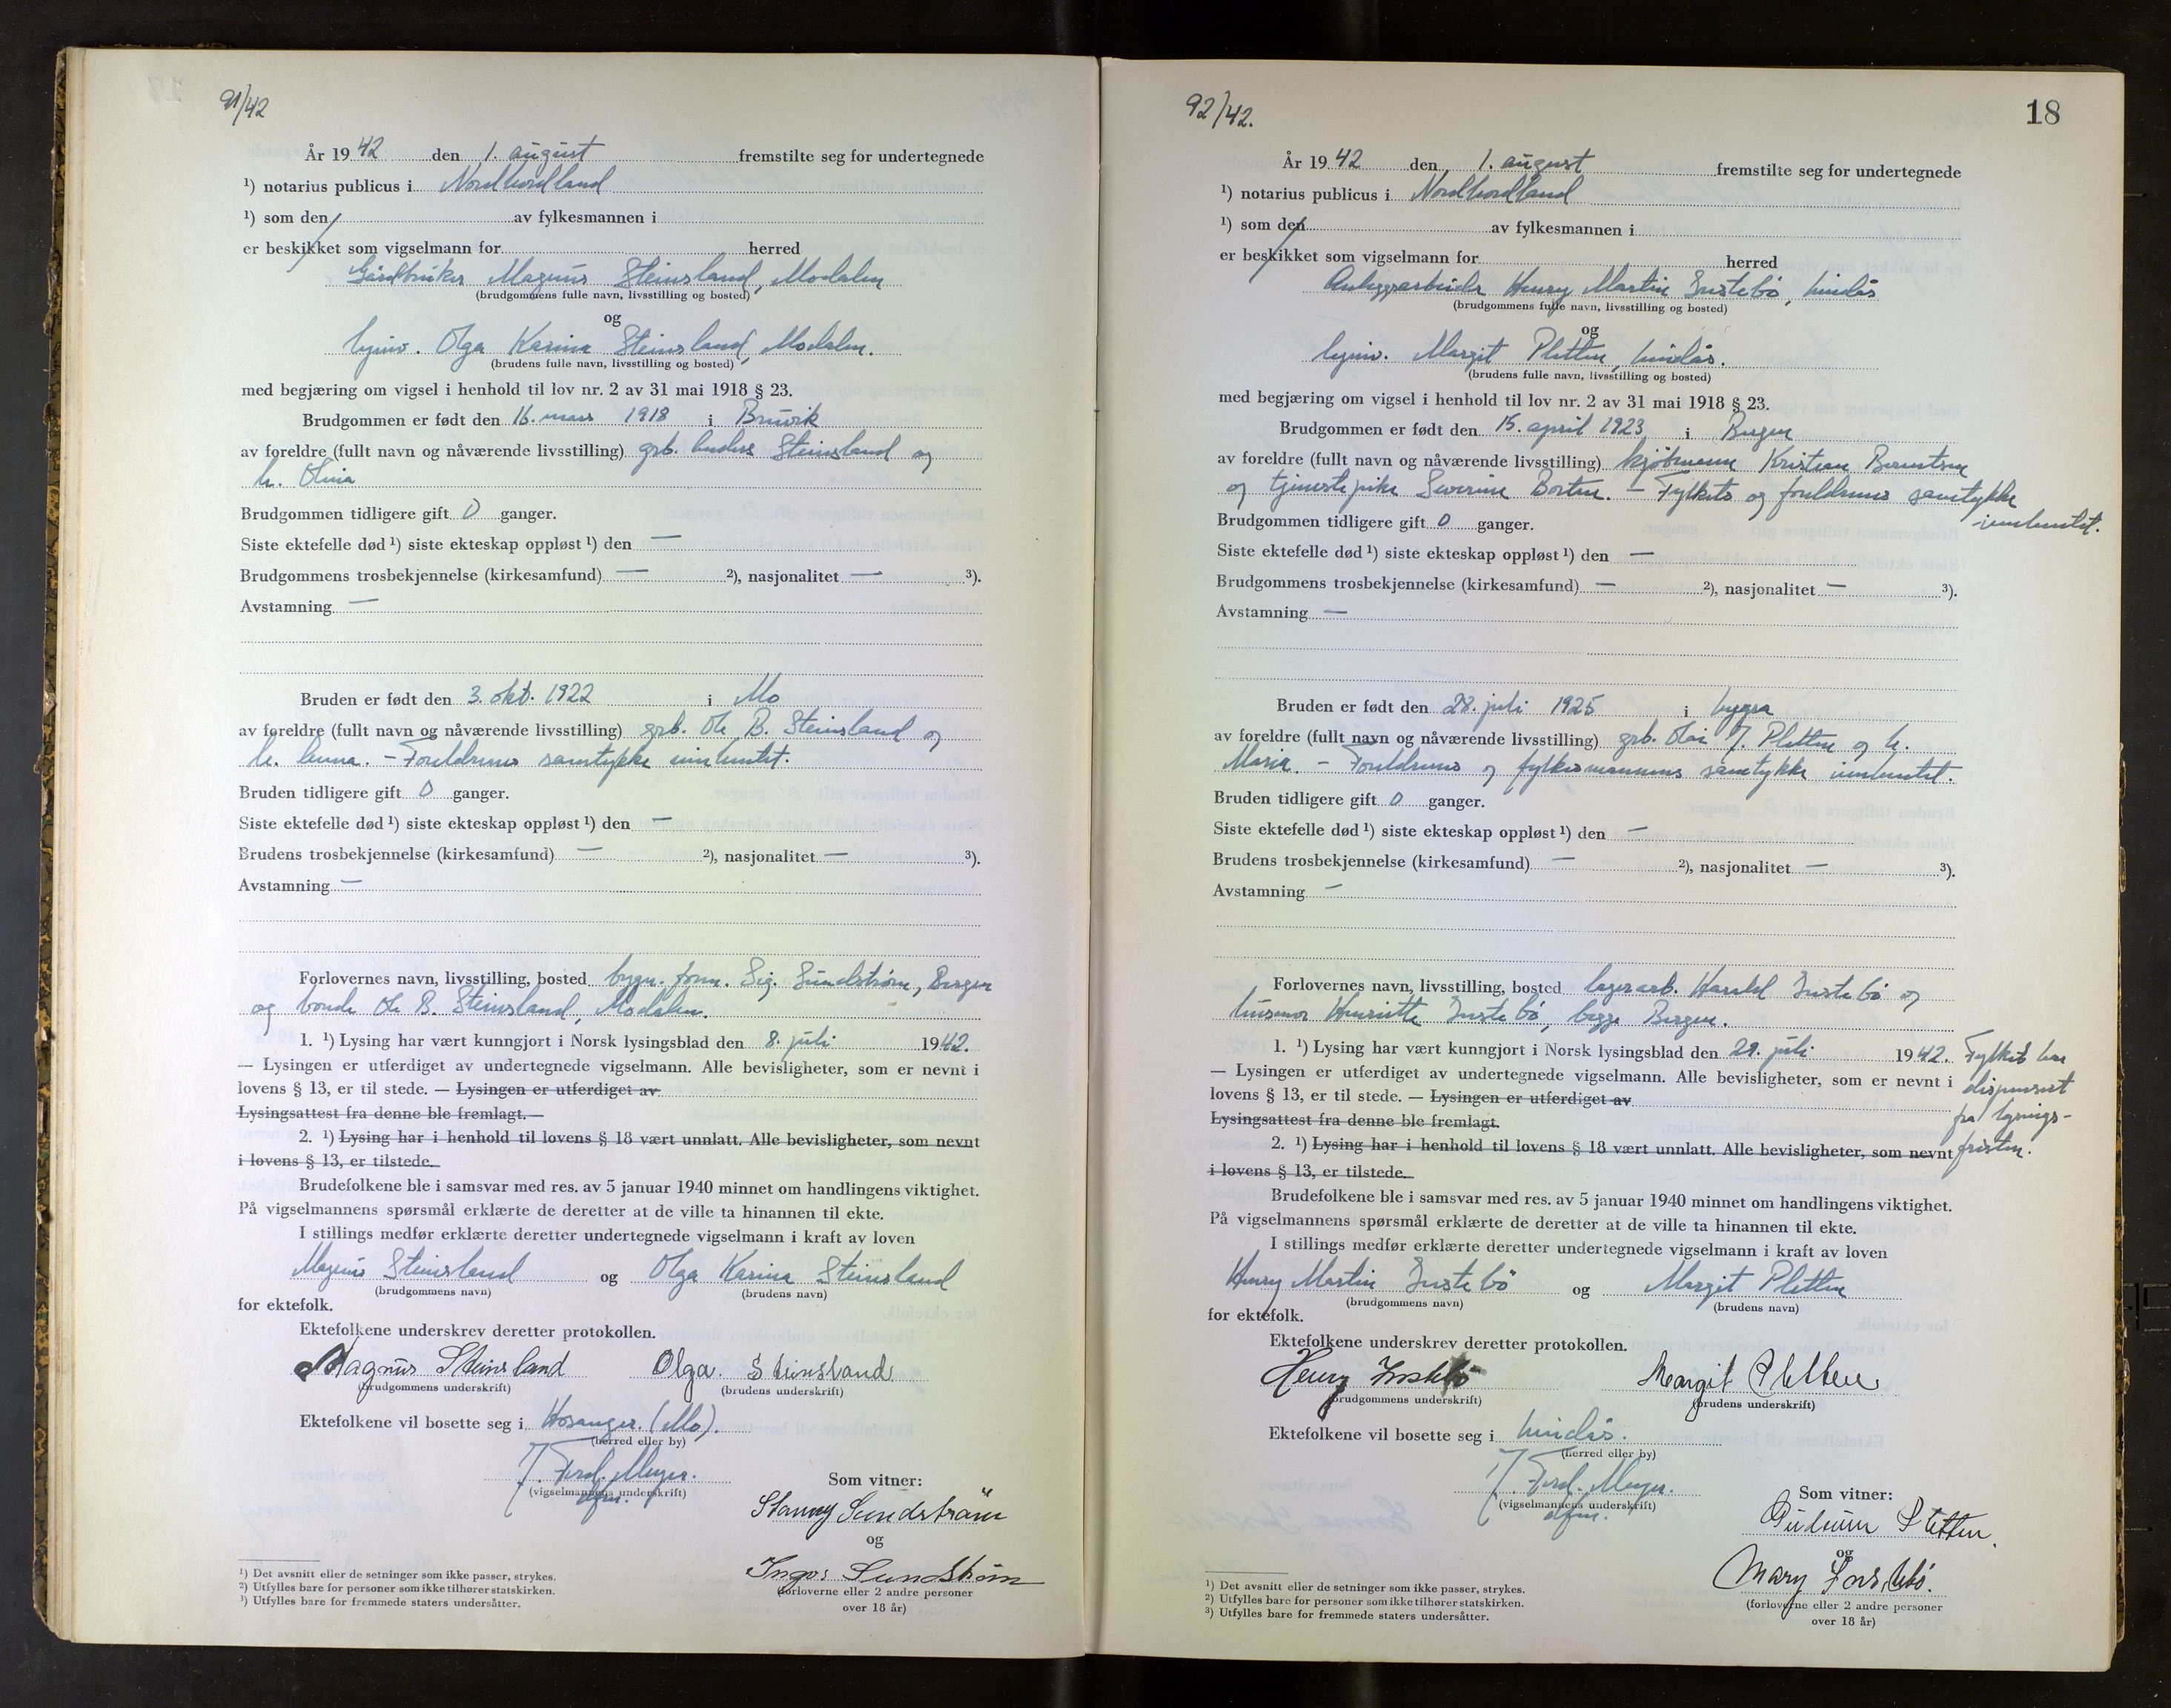 91/42
År 1942 den 1. august fremstilte seg for undertegnede
¹) notarius publicus i Nordhordland
¹) som den av fylkesmannen i
er beskikket som vigselmann for herred
Gårdbruker Magnus Steinsland, Modalen
(brudgommens fulle navn, livsstilling og bosted)
og
hjmv. Olga Karina Steinsland, Modalen.
(brudens fulle navn, livsstilling og bosted)
med begjæring om vigsel i henhold til lov nr. 2 av 31 mai 1918 § 23.
Brudgommen er født den 16. mars 1918 i Bruvik
av foreldre (fullt navn og nåværende livsstilling) grb. Anders Steinsland og
h. Olina
Brudgommen tidligere gift 0 ganger.
Siste ektefelle død ¹) siste ekteskap oppløst ¹) den —
Brudgommens trosbekjennelse (kirkesamfund) — ²), nasjonalitet — ³).
Avstamning —
Bruden er født den 3. okt. 1922 i Mo
av foreldre (fullt navn og nåværende livsstilling) grb. Ole B. Steinsland og
h. Anna. – Foreldrenes samtykke innhentet.
Bruden tidligere gift 0 ganger.
Siste ektefelle død ¹) siste ekteskap oppløst ¹) den —
Brudens trosbekjennelse (kirkesamfund) — ²), nasjonalitet — ³).
Avstamning —
Forlovernes navn, livsstilling, bosted bygn. form. Sig. Sundstrøm, Bergen
og bonde Ole B. Steinsland, Modalen.
1. ¹) Lysing har vært kunngjort i Norsk lysingsblad den 8. juli 1942.
— Lysingen er utferdiget av undertegnede vigselmann. Alle bevisligheter, som er nevnt i
lovens § 13, er til stede. — Lysingen er utferdiget av
Lysingsattest fra denne ble fremlagt.—
2. ¹) Lysing har i henhold til lovens § 18 vært unnlatt. Alle bevisligheter, som nevnt
i lovens § 13, er tilstede.
Brudefolkene ble i samsvar med res. av 5 januar 1940 minnet om handlingens viktighet.
På vigselmannens spørsmål erklærte de deretter at de ville ta hinannen til ekte.
I stillings medfør erklærte deretter undertegnede vigselmann i kraft av loven
Magnus Steinsland og Olga Karina Steinsland
(brudgommens navn) (brudens navn)
for ektefolk.
Ektefolkene underskrev deretter protokollen.
Magnus Steinsland Olga. Steinsland
(brudgommens underskrift) (brudens underskrift)
Ektefolkene vil bosette seg i Hosanger. (Mo).
(herred eller by)
J. Ferd. Meyer.
(vigselmannens underskrift)
dfm.
Som vitner:
Stanny Sundström
og
Inger Sundstrøm
(forloverne eller 2 andre personer
over 18 år)
¹) Det avsnitt eller de setninger som ikke passer, strykes.
²) Utfylles bare for personer som ikke tilhører statskirken.
³) Utfylles bare for fremmede staters undersåtter.
92/42.
18
År 1942 den 1. august fremstilte seg for undertegnede
¹) notarius publicus i Nordhordland
¹) som den av fylkesmannen i
er beskikket som vigselmann for herred
Anleggsarbeider Henry Martin Instebö, Lindås
(brudgommens fulle navn, livsstilling og bosted)
og
hjmv. Margit Pletten, Lindås.
(brudens fulle navn, livsstilling og bosted)
med begjæring om vigsel i henhold til lov nr. 2 av 31 mai 1918 § 23.
Brudgommen er født den 15. april 1923 i Bergen
av foreldre (fullt navn og nåværende livsstilling) kjöbmann Kristian Berntsen
og tjenestepike Severine Borten. – Fylkets og foreldrenes samtykke
– innhentet.
Brudgommen tidligere gift 0 ganger.
Siste ektefelle død ¹) siste ekteskap oppløst ¹) den —
Brudgommens trosbekjennelse (kirkesamfund) — ²), nasjonalitet — ³).
Avstamning —
Bruden er født den 28. juli 1925 i Lygra
av foreldre (fullt navn og nåværende livsstilling) grb. Olai J. Pletten og h.
Maria. – Foreldrenes og fylkesmannens samtykke innhentet.
Bruden tidligere gift 0 ganger.
Siste ektefelle død ¹) siste ekteskap oppløst ¹) den —
Brudens trosbekjennelse (kirkesamfund) — ²), nasjonalitet — ³).
Avstamning —
Forlovernes navn, livsstilling, bosted lagerarb. Harald Instebö og
husmor Henriette Instebö, begge Bergen.
1. ¹) Lysing har vært kunngjort i Norsk lysingsblad den 29. juli 1942.
— Lysingen er utferdiget av undertegnede vigselmann. Alle bevisligheter, som er nevnt i
lovens § 13, er til stede. — Lysingen er utferdiget av
Lysingsattest fra denne ble fremlagt.
2. ¹) Lysing har i henhold til lovens § 18 vært unnlatt. Alle bevisligheter, som nevnt
i lovens § 13, er tilstede.
Fylket har
dispensert
fra lysings-
fristen.
Brudefolkene ble i samsvar med res. av 5 januar 1940 minnet om handlingens viktighet.
På vigselmannens spørsmål erklærte de deretter at de ville ta hinannen til ekte.
I stillings medfør erklærte deretter undertegnede vigselmann i kraft av loven
Henry Martin Instebö og Margit Pletten
(brudgommens navn) (brudens navn)
for ektefolk.
Ektefolkene underskrev deretter protokollen.
Henry Instebö Margit Pletten
(brudgommens underskrift) (brudens underskrift)
Ektefolkene vil bosette seg i Lindås.
(herred eller by)
J. Ferd. Meyer.
(vigselmannens underskrift)
dfm.
Som vitner:
Gudrunn Pletten.
og
Mary Instebö.
(forloverne eller 2 andre personer
over 18 år)
¹) Det avsnitt eller de setninger som ikke passer, strykes.
²) Utfylles bare for personer som ikke tilhører statskirken.
³) Utfylles bare for fremmede staters undersåtter.